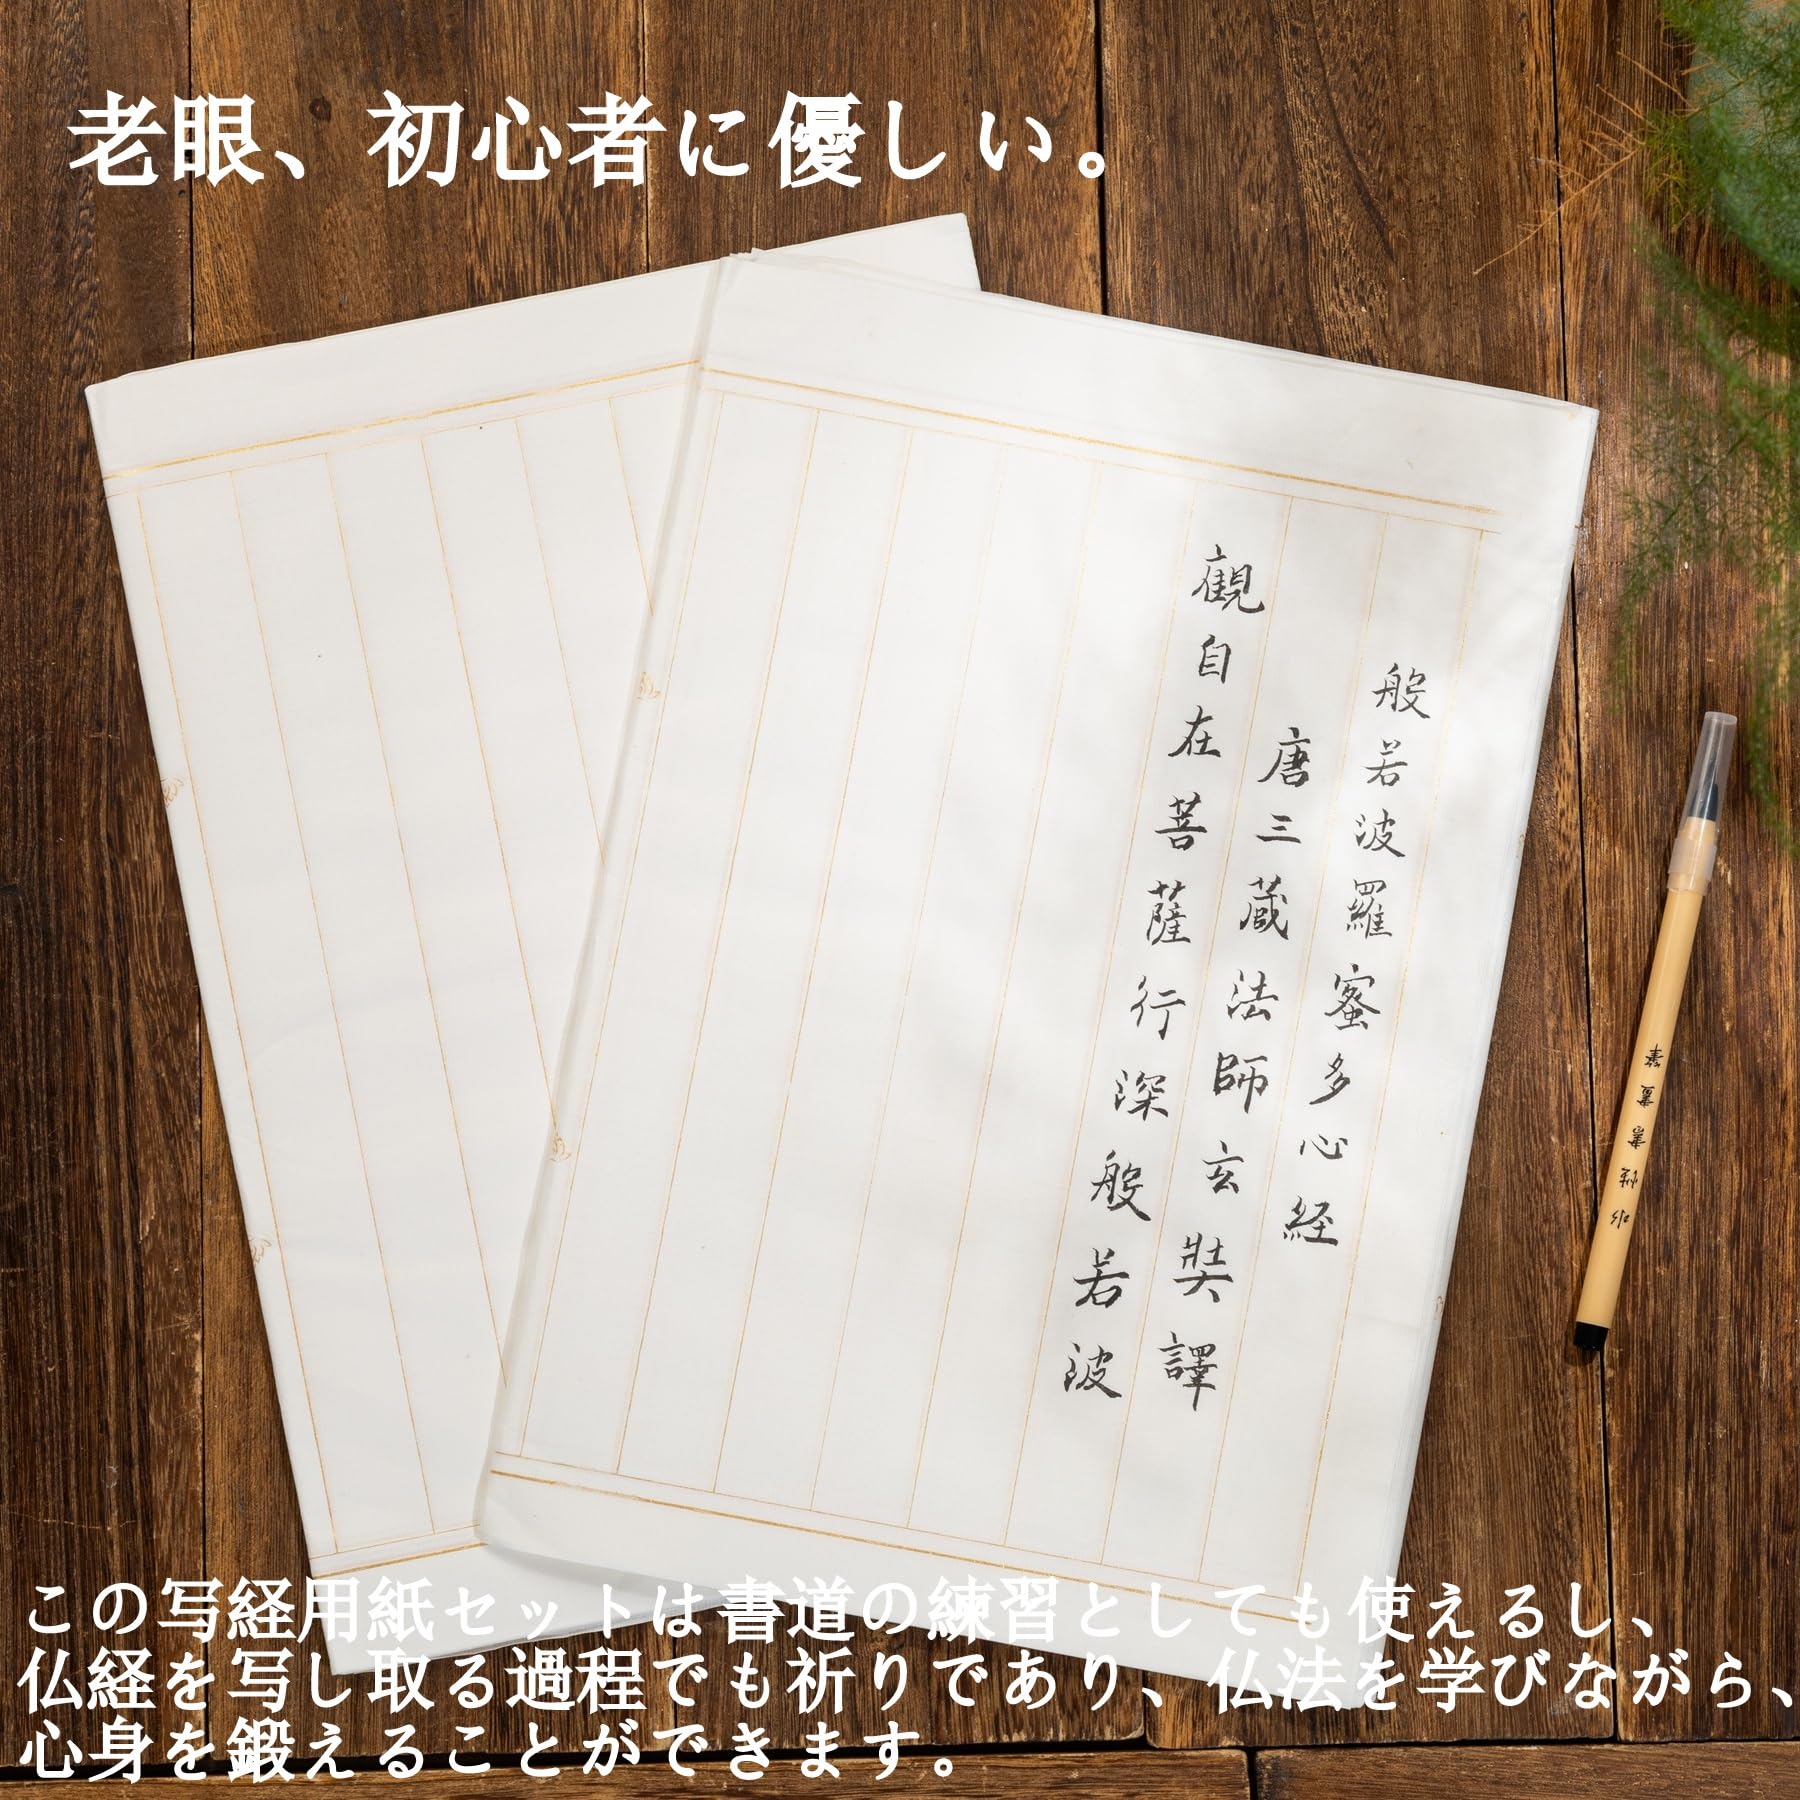 老眼、初心者に優しい。
般若波羅蜜多心経
唐三蔵法師玄奘譯
観自在菩薩行深般若波
水性書畫筆
この写経用紙セットは書道の練習としても使えるし、
仏経を写し取る過程でも祈りであり、仏法を学びながら、
心身を鍛えることができます。